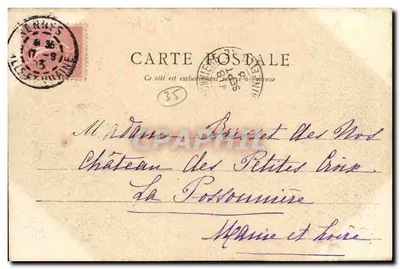 RENNES
17 - 9
ILLE-ET-VILAINE
CARTE POSTALE
Ce côté est exclusivement
35
Madame Burget des Nos
Château des Petites Croix
La Possonnière
Maine et Loire